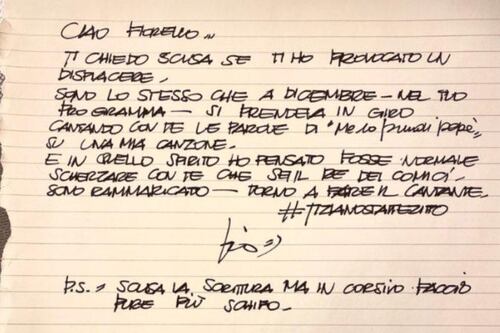 CIAO FIORELLO...
TI CHIEDO SCUSA SE TI HO PROVOCATO UN
DISPIACERE.
SONO LO STESSO CHE A DICEMBRE - NEL TUO
PROGRAMMA - SI PRENDEVA IN GIRO
CANTANDO CON TE LE PAROLE DI "Me lo prendi papà"
SU UNA MIA CANZONE.
E IN QUELLO SPIRITO HO PENSATO FOSSE NORMALE
SCHERZARE CON TE CHE SEI IL RE DEI COMICI.
SONO RAMMARICATO - TORNO A FARE IL CANTANTE.
#TIZIANOSTATTEZITTO
P.S. = SCUSA LA SCRITTURA MA IN CORSIVO FACCIO
PURE PIÙ SCHIFO.